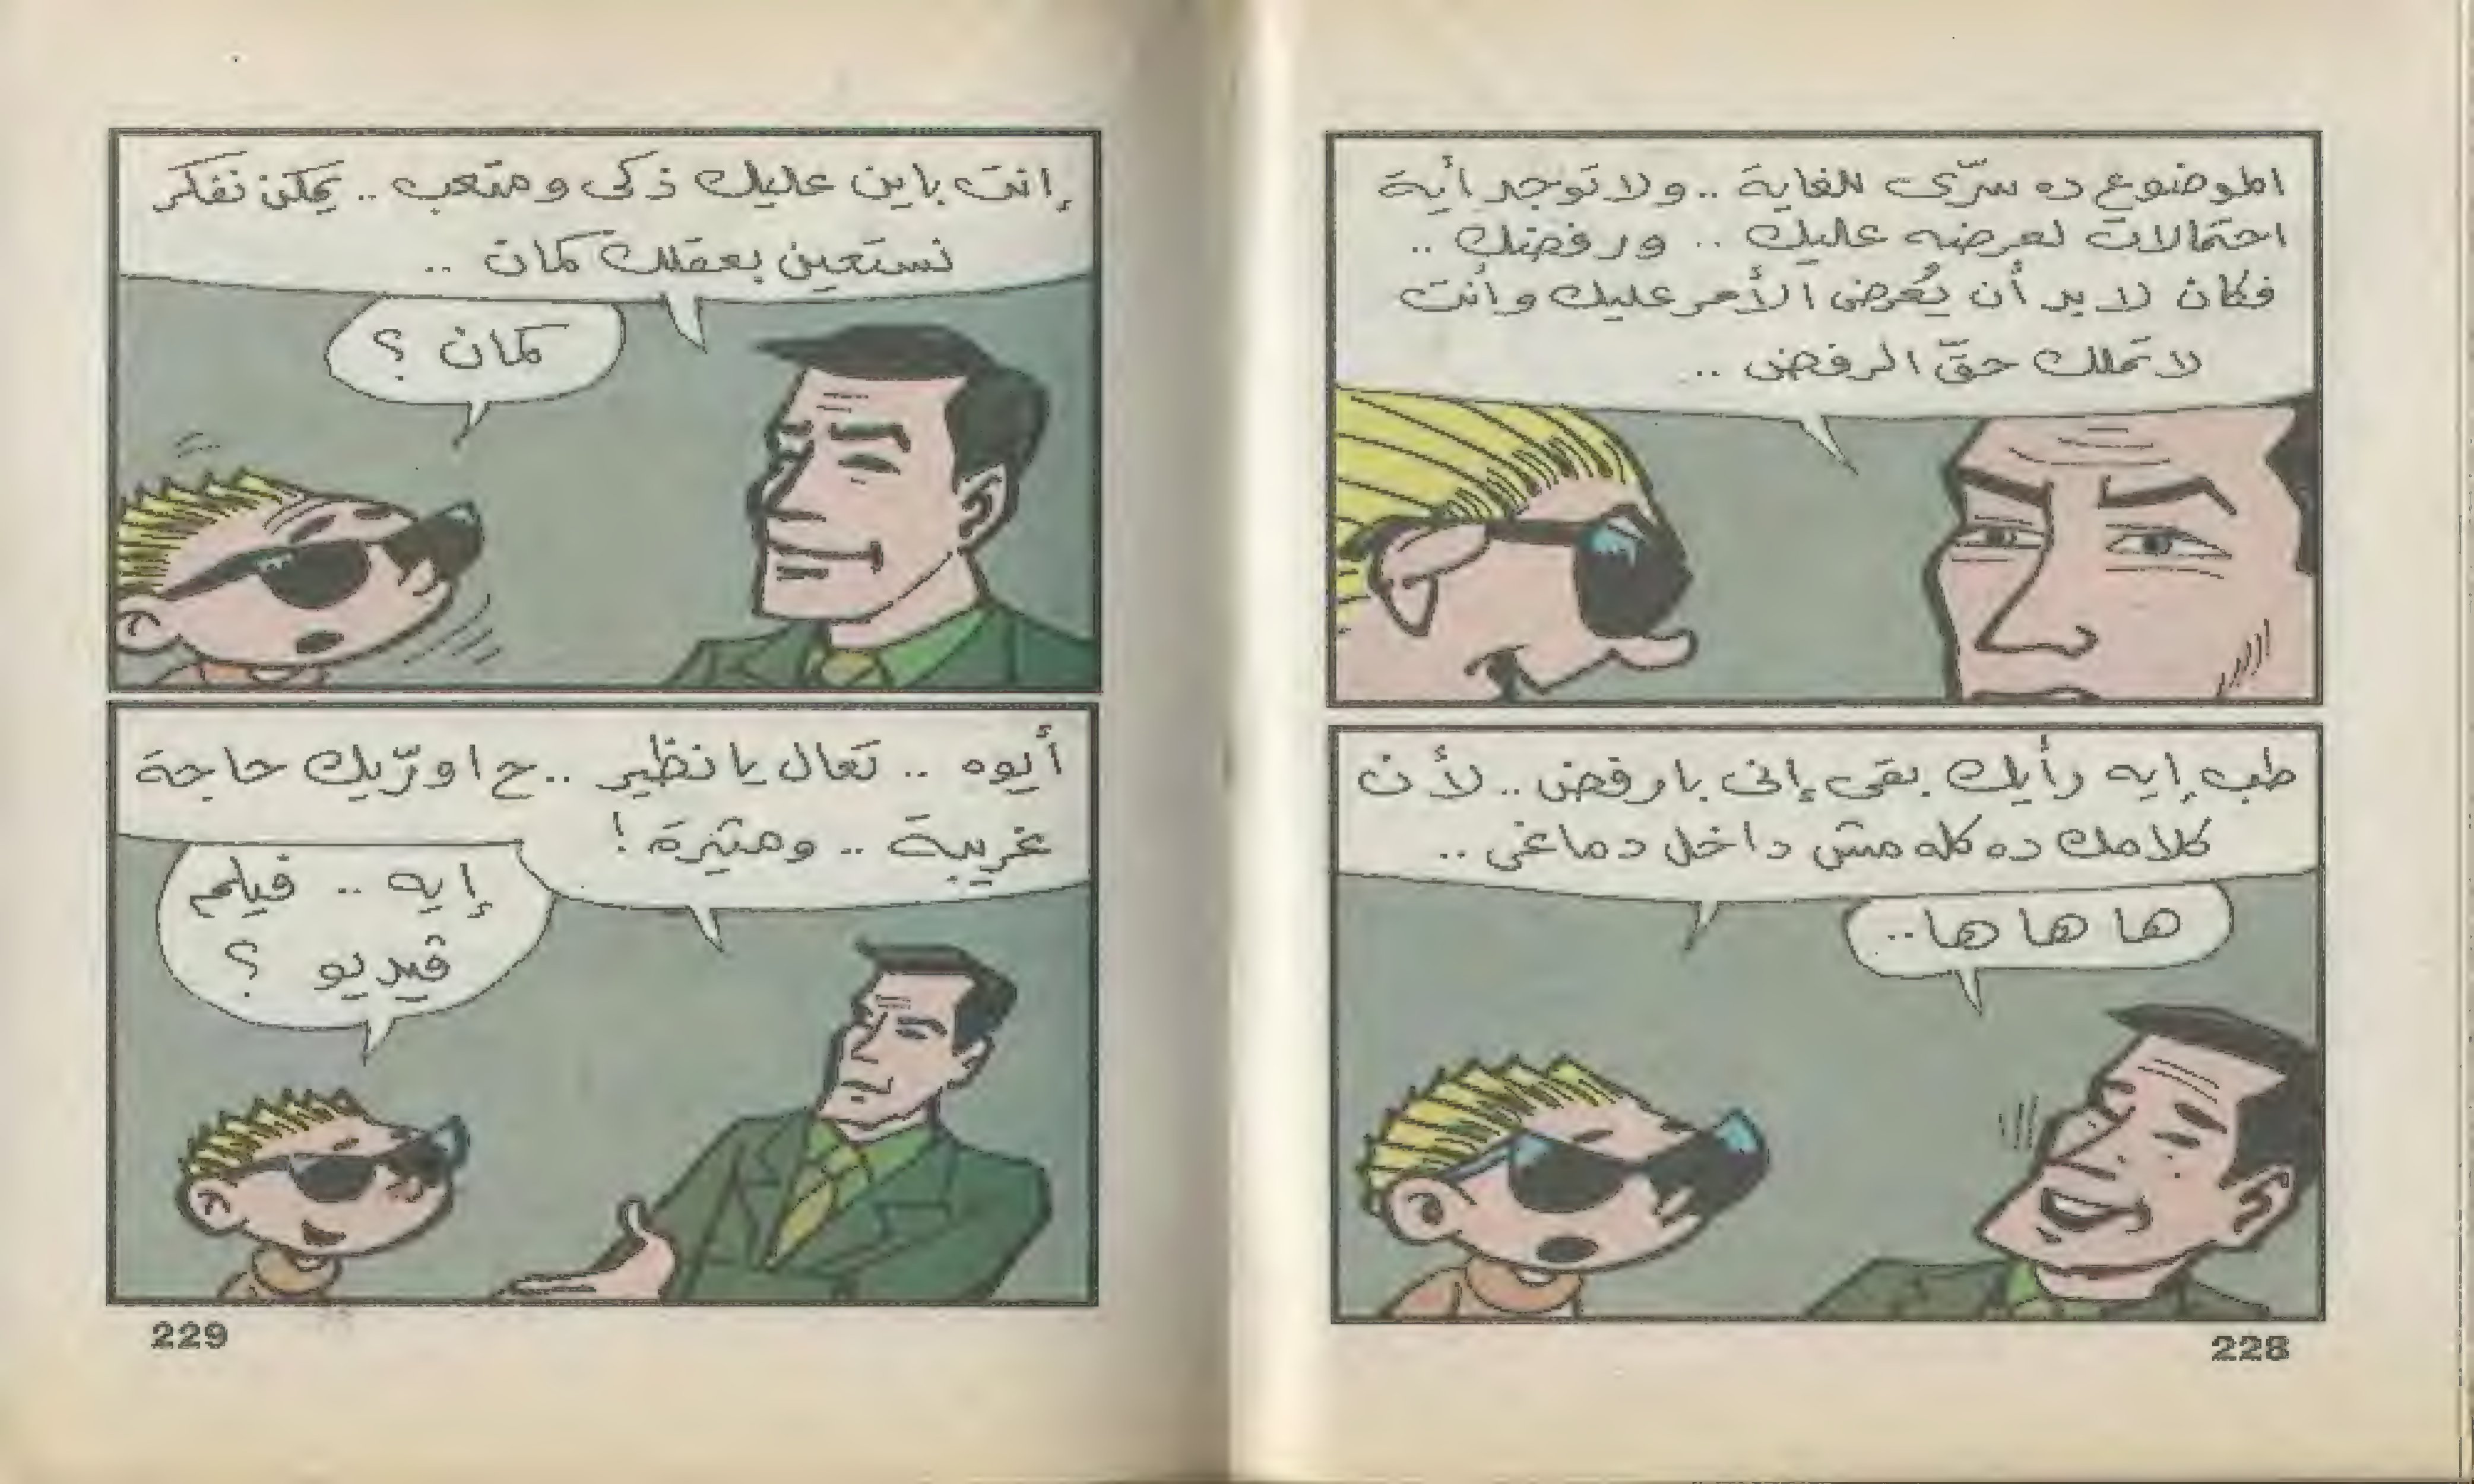 الموضوع ده سرّى للغاية .. ولا توجد أية
احتمالات لعرضه عليك .. ورفضك ..
فكان لا بد أن يُعرض الأمر عليك وأنت
لا تملك حقّ الرفض ..
طب إيه رأيك بقى إنى بارفض .. لأن
كلامك ده كله مش داخل دماغى ..
ها ها ها ..
228
إنت باين عليك ذكى ومتعب .. يمكن نفكر
نستعين بعقلك كمان ..
كمان ؟
أيوه .. تعال يا نظير .. ح اورّيك حاجة
غريبة .. ومثيرة !
إيه .. فيلم
ڤيديو ؟
229